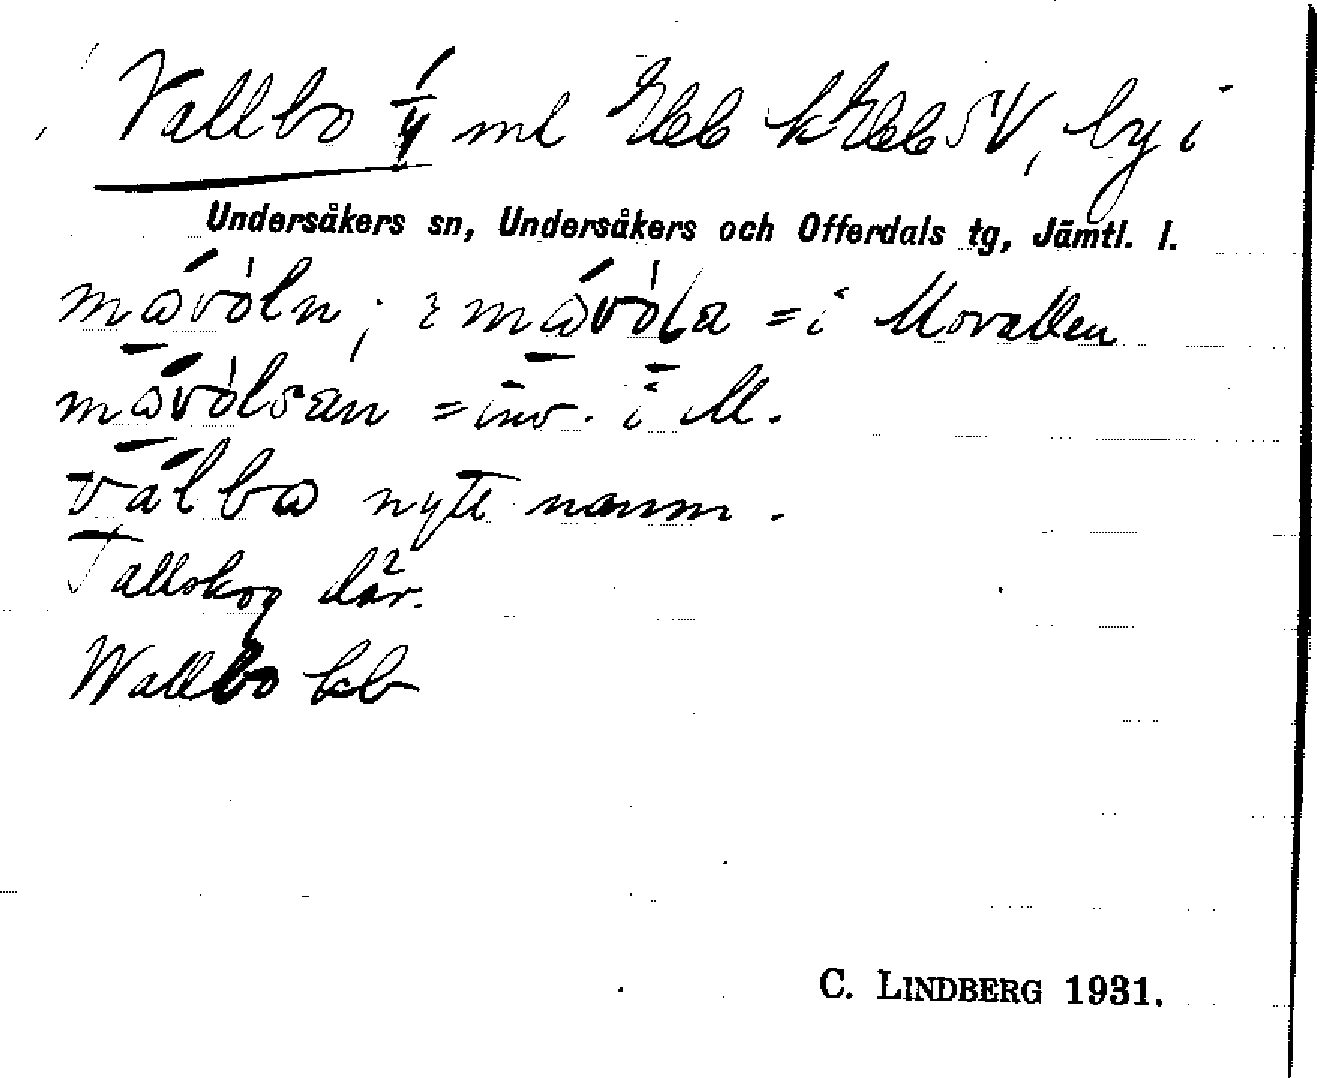 Vallbo 1/4 ml by i
Undersåkers sn, Undersåkers och Offerdals tg, Jämtl. l.
måvòln; i måvòla = i Movallen
måvòlsan = inv. i M.
válba nytt namn.
Tallskog där.
Wallbo kb
C. LINDBERG 1931.